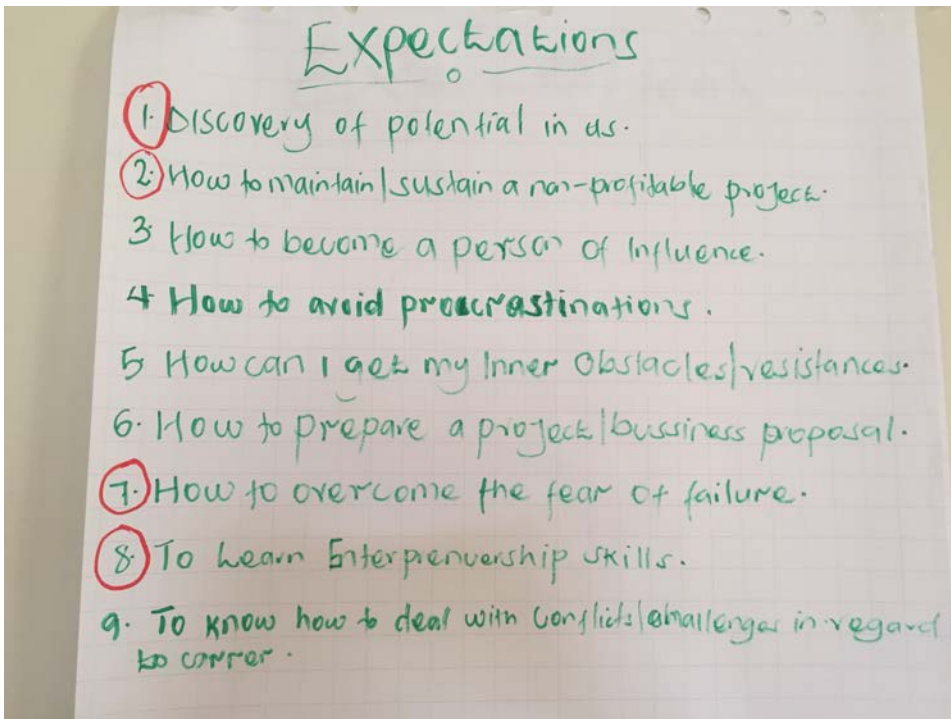 Expectations
1. Discovery of potential in us.
2. How to maintain/sustain a non-profitable project.
3. How to become a person of Influence.
4 How to avoid procrastinations.
5 How can I get my Inner Obstacles/resistances.
6. How to prepare a project/bussiness proposal.
7. How to overcome the fear of failure.
8. To Learn Enterprenuership skills.
9. To know how to deal with conflicts/challenges in regard
to carrer.